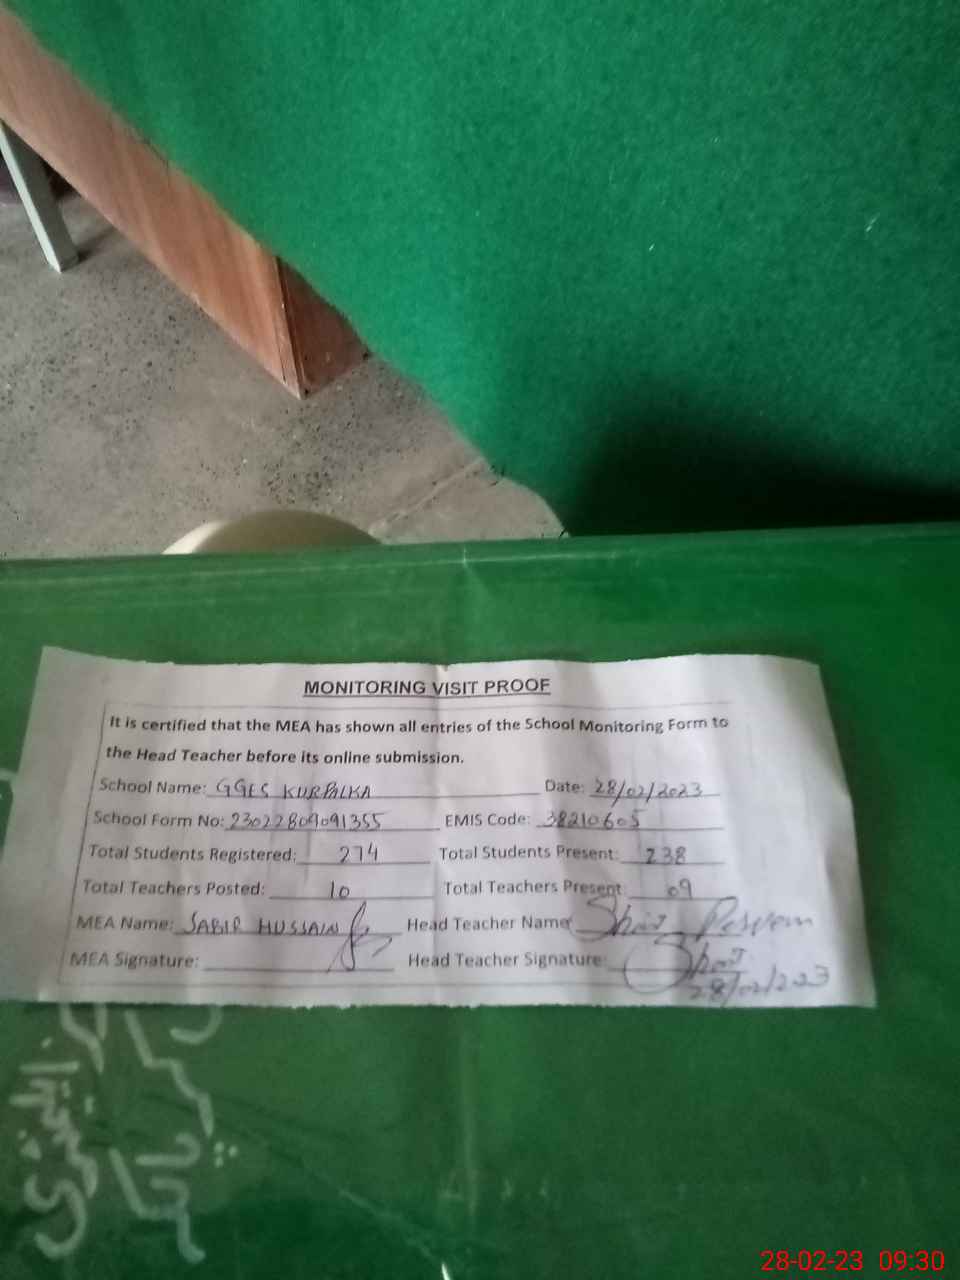 MONITORING VISIT PROOF
It is certified that the MEA has shown all entries of the School Monitoring Form to
the Head Teacher before its online submission.
School Name: GGES KURPALKA Date: 28/02/2023
School Form No: 23022809091355 EMIS Code: 38210605
Total Students Registered: 274 Total Students Present: 238
Total Teachers Posted: 10 Total Teachers Present: 09
MEA Name: SABIR HUSSAIN Head Teacher Name
MEA Signature: Head Teacher Signature:
28/02/2023
28-02-23 09:30